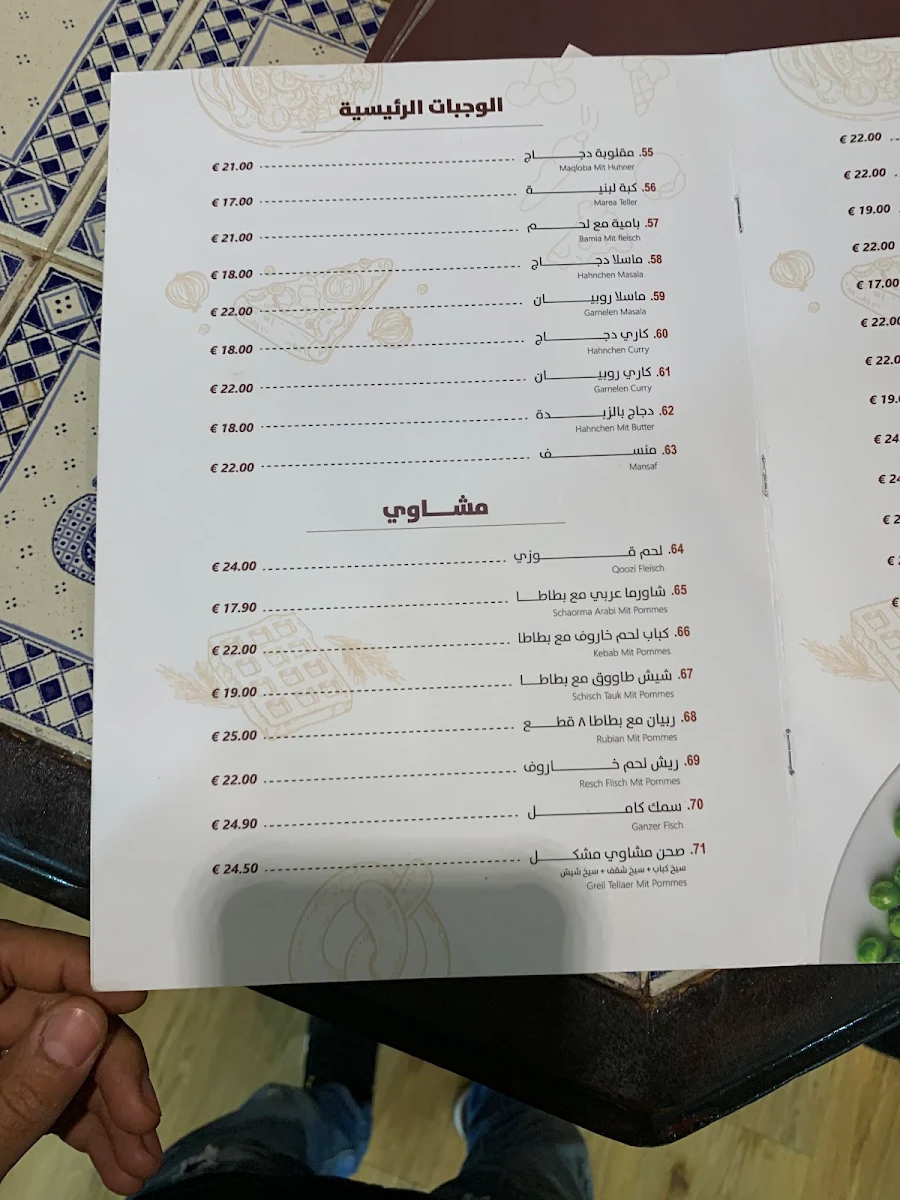 الوجبات الرئيسية
55. مقلوبة دجـــــاج € 21.00
Maqloba Mit Huhner
56. كبة لبنيـــــــة € 17.00
Marea Teller
57. بامية مع لحـــــــم € 21.00
Bamia Mit fleisch
58. ماسلا دجـــــاج € 18.00
Hahnchen Masala
59. ماسلا روبيـــــــان € 22.00
Garnelen Masala
60. كاري دجـــــــاج € 18.00
Hahnchen Curry
61. كاري روبيـــــــان € 22.00
Garnelen Curry
62. دجاج بالزبـــــــدة € 18.00
Hahnchen Mit Butter
63. منســـــــف € 22.00
Mansaf
مشـــاوي
64. لحم قـــــــوزي € 24.00
Qoozi Fleisch
65. شاورما عربي مع بطاطـــا € 17.90
Schaorma Arabi Mit Pommes
66. كباب لحم خاروف مع بطاطا € 22.00
Kebab Mit Pommes
67. شيش طاووق مع بطاطـــا € 19.00
Schisch Tauk Mit Pommes
68. ربيان مع بطاطا ٨ قطـــــع € 25.00
Rubian Mit Pommes
69. ريش لحم خـــــــاروف € 22.00
Resch Flisch Mit Pommes
70. سمك كامـــــــل € 24.90
Ganzer Fisch
71. صحن مشاوي مشكـــــل € 24.50
سيخ كباب + سيخ شقف + سيخ شيش
Greil Tellaer Mit Pommes
€ 22.00
€ 22.00
€ 19.00
€ 22.00
€ 17.00
€ 22.0
€ 22.0
€ 19.
€ 24
€ 24
€ 2
€
€